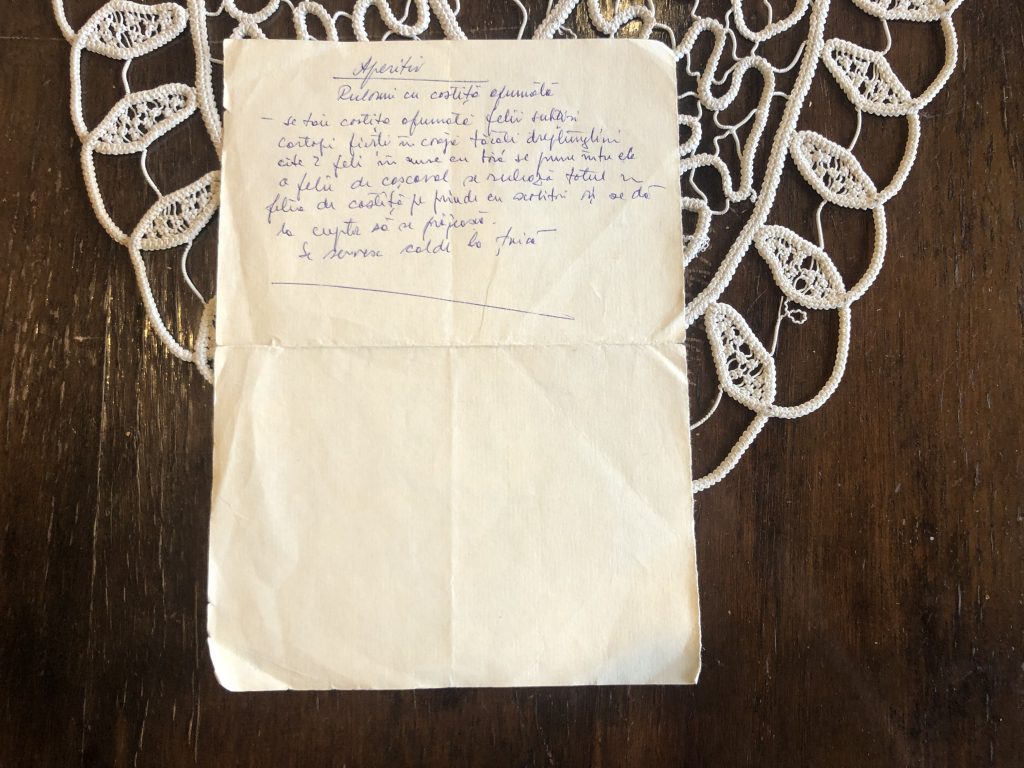 Aperitiv
Rulouri cu costiță afumată
- se taie costița afumată felii subțiri
cartofi fierți în coajă tăiați dreptunghiuri
cîte 2 felii în care cu se pune între ele
o felie de cașcaval se rulează totul în
felia de costiță se prinde cu scobitori și se dă
la cuptor să se prăjească.
Se servesc calde la țuică